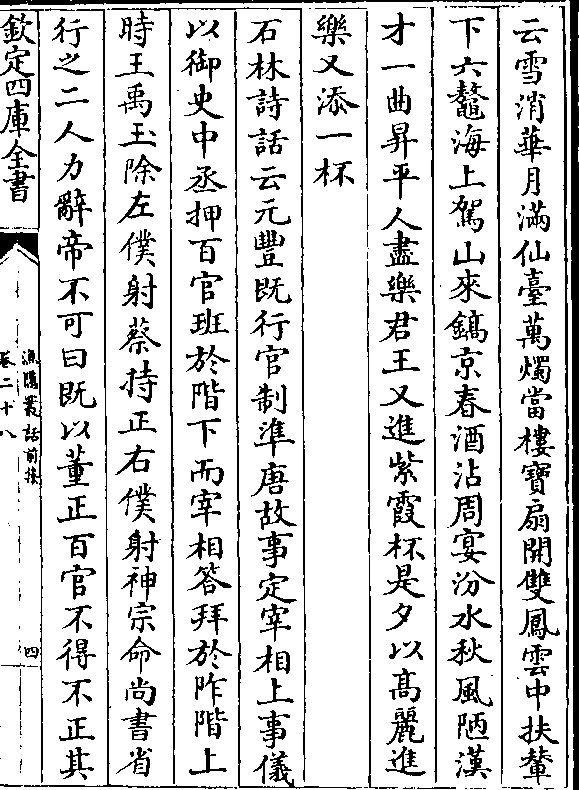 云雪消華月滿仙臺萬燭當樓寶扇開雙鳳雲中扶輦
下六鼇海上駕山來鎬京春酒沾周宴汾水秋風陋漢
才一曲昇平人盡樂君王又進紫霞杯是夕以髙麗進
樂又添一杯
石林詩話云元豐既行官制準唐故事定宰相上事儀
以御史中丞押百官班於階下而宰相答拜於阼階上
時王禹玉除左僕射蔡持正右僕射神宗命尚書省
行之二人力辭帝不可曰既以董正百官不得不正其
欽定四庫全書
漁隱叢話前集
卷二十八
四